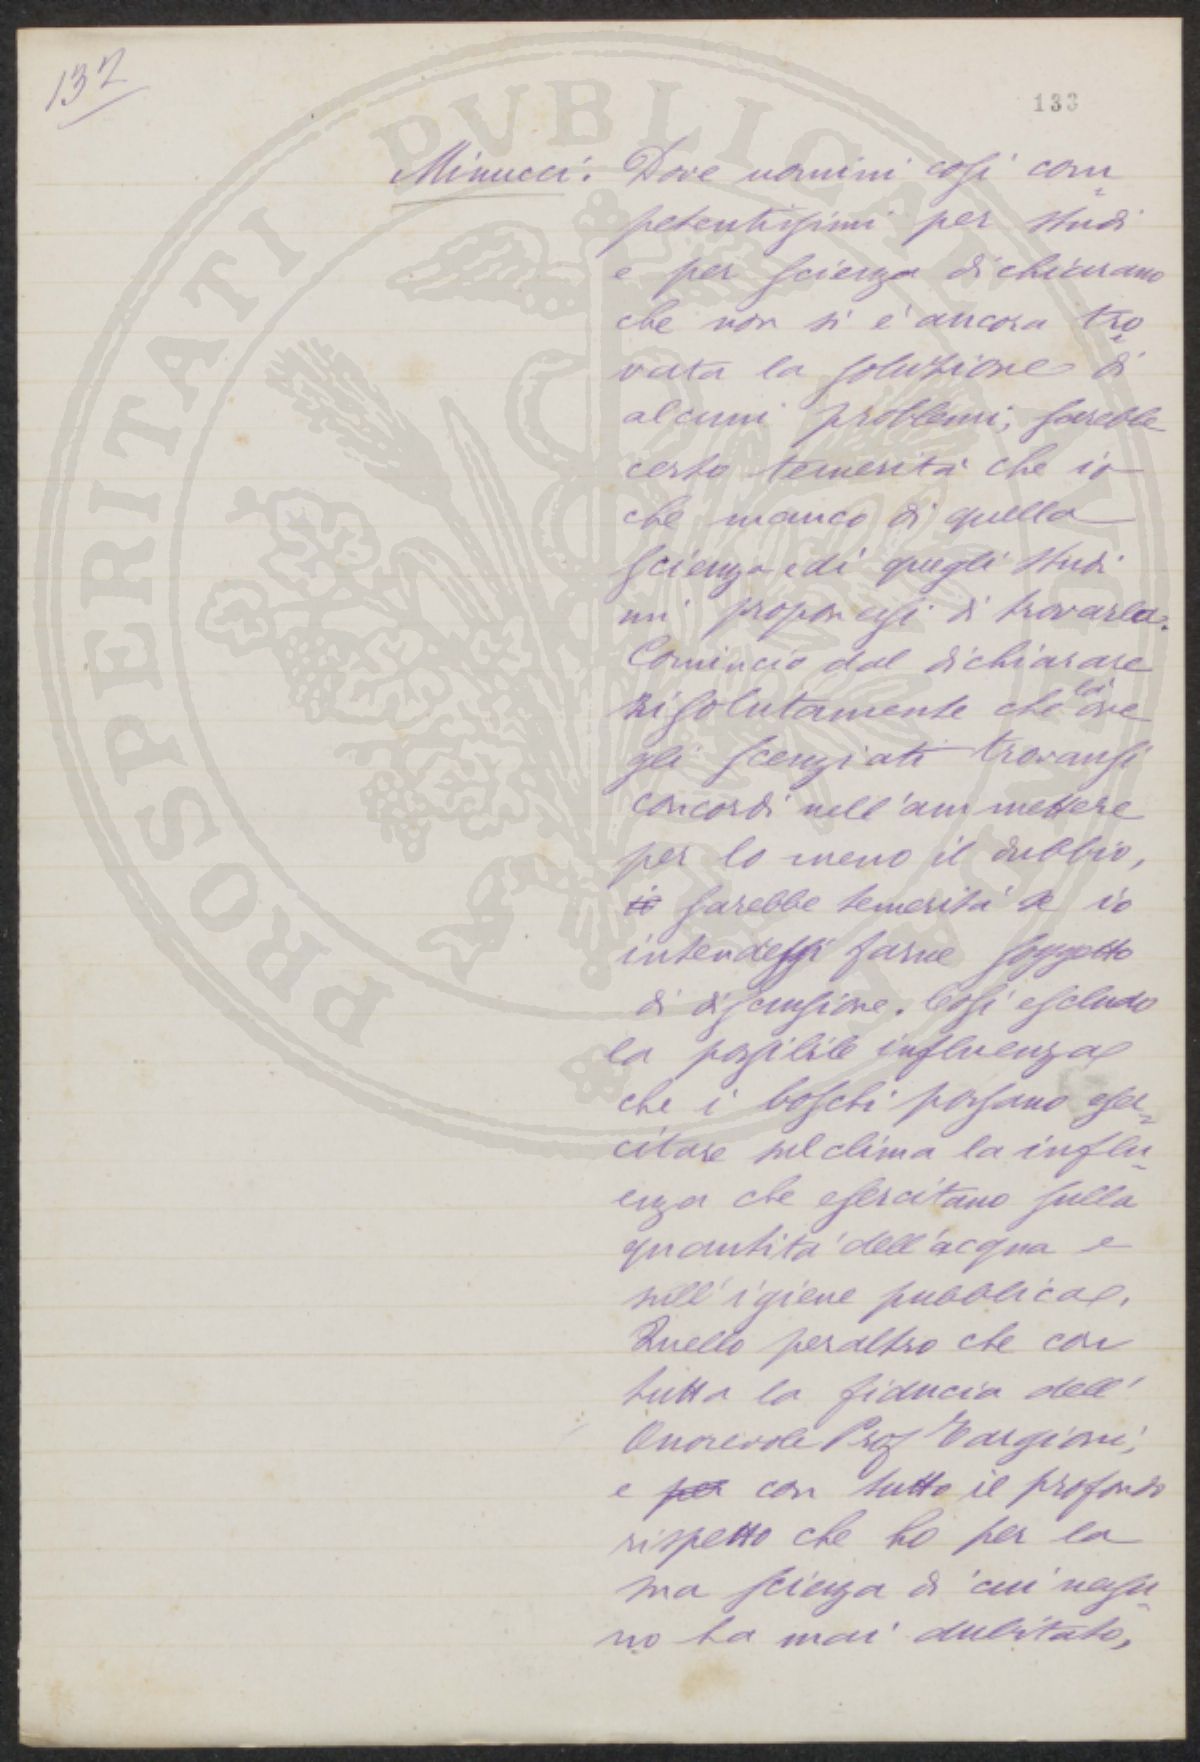 137
133
Minucci: Dove uomini così com-
petentissimi per studi
e per scienza dichiarano
che non si è ancora tro-
vata la soluzione di
alcuni problemi; sarebbe
certo temerità che io
che manco di quella
scienza e di quegli studi
mi proponessi di trovarla.
Comincio dal dichiarare
risolutamente che là ove
gli scenziati trovansi
concordi nell'ammettere
per lo meno il dubbio,
io sarebbe temerità se io
intendessi farne soggetto
di discussione. Così escludo
la possibile influenza
che i boschi possano eser-
citare sul clima la influ-
enza che esercitano sulla
quantità dell'acqua e
sull'igiene pubblica.
Quello peraltro che con
tutta la fiducia dell'
Onorevole Prof Targioni;
e per con tutto il profondo
rispetto che ho per la
sua scienza di cui nessu-
no ha mai dubitato,
PROSPERITATI PVBLICAE